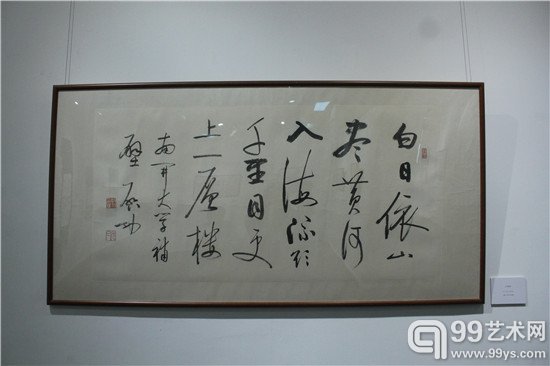 白日依山
尽黄河
入海流欲
千里目更
上一层楼
南开大学補
壁 启功
99艺术网
www.99ys.com